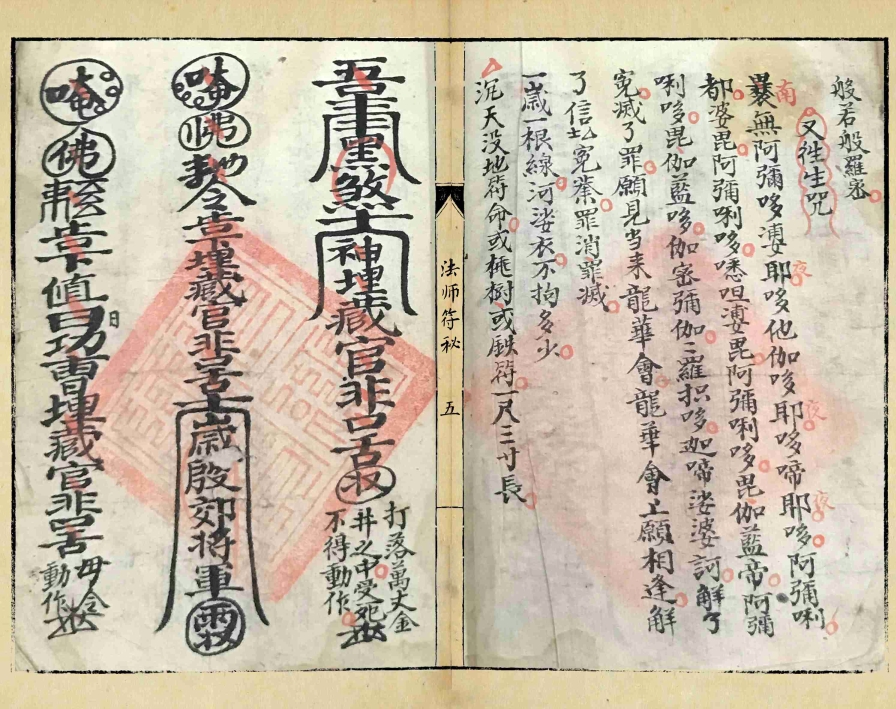 般若般羅密
又徃生咒
南
曩無阿彌哆婆耶哆他伽哆耶哆啼耶哆阿彌唎
都婆毘阿彌唎哆悉呾婆毘阿彌唎哆毘伽藍帝阿彌
唎哆毘伽藍哆伽密彌伽〻羅抧哆迦啼娑婆訶解了
寃滅了罪願見当来龍華會龍華會上願相逢解
了信士寃業罪消罪滅
一歲一根線河娑衣不拘多少
沉天没地符命或桃樹或鉄符一尺三寸長
夜
夜
夜
法师符秘
五
吾奉黑煞土神埋藏官非口舌
打落萬丈金
井之中受死
不得動作
唵
佛
令
埋藏官非口舌
歲殷郊将軍
唵
佛
值日功曹埋藏官非口舌
動作